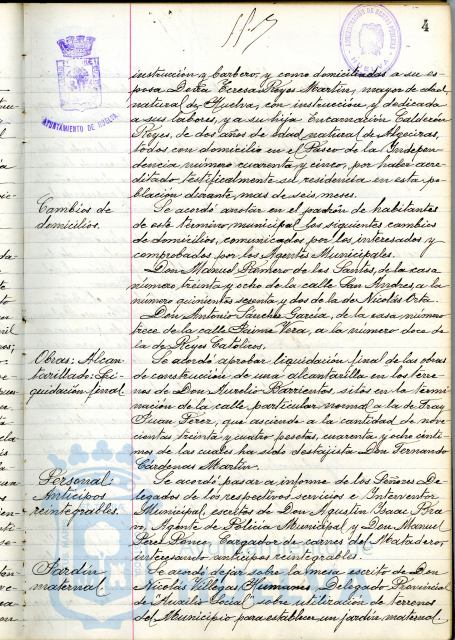 4
AYUNTAMIENTO DE HUELVA
instrucción y barbero, y como domiciliadas a su es-
posa Doña Teresa Reyes Martín, mayor de edad,
natural de Huelva, con instrucción y dedicada
a sus labores, y a su hija Encarnación Calderón
Reyes, de dos años de edad, natural de Algeciras,
todos con domicilio en el Paseo de la Indepen-
dencia número cuarenta y cinco, por haber acre-
ditado testificalmente su residencia en esta po-
blación durante mas de seis meses.
Cambios de
domicilios.
Se acordó anotar en el padrón de habitantes
de este término municipal los siguientes cambios
de domicilios, comunicados por los interesados y
comprobados por los Agentes Municipales.
Don Manuel Romero de los Santos, de la casa
número treinta y ocho de la calle San Andres, a la
número quinientos setenta y dos de la de Nicolás Orta.
Don Antonio Sanchez García, de la casa número
trece de la calle Jaime Vera, a la número doce de
la de Reyes Católicos.
Obras: Alcan-
tarillado: Li-
quidación final
Se acordó aprobar liquidación final de las obras
de construcción de una alcantarilla en los terre-
nos de Don Aurelio Barrientos, sitos en la termi-
nación de la calle particular normal a la de Fray
Juan Perez, que asciende a la cantidad de nove-
cientas treinta y cuatro pesetas, cuarenta y ocho cénti-
mos de las cuales ha sido destajista Don Fernando
Cárdenas Martín.
Personal:
Anticipos
reintegrables.
Se acordó pasar a informe de los Señores De-
legados de los respectivos servicios e Interventor
Municipal, escritos de Don Agustín Isaac Bra-
vo, Agente de Policia Municipal y Don Manuel
Pérez Ponce, Cargador de carnes del Matadero,
interesando anticipos reintegrables.
Jardín
maternal.
Se acordó dejar sobre la mesa escrito de Don
Nicolás Villegas Humanes, Delegado Provincial
de "Auxilio Social" sobre utilización de terrenos
del Municipio para establecer un jardín maternal.